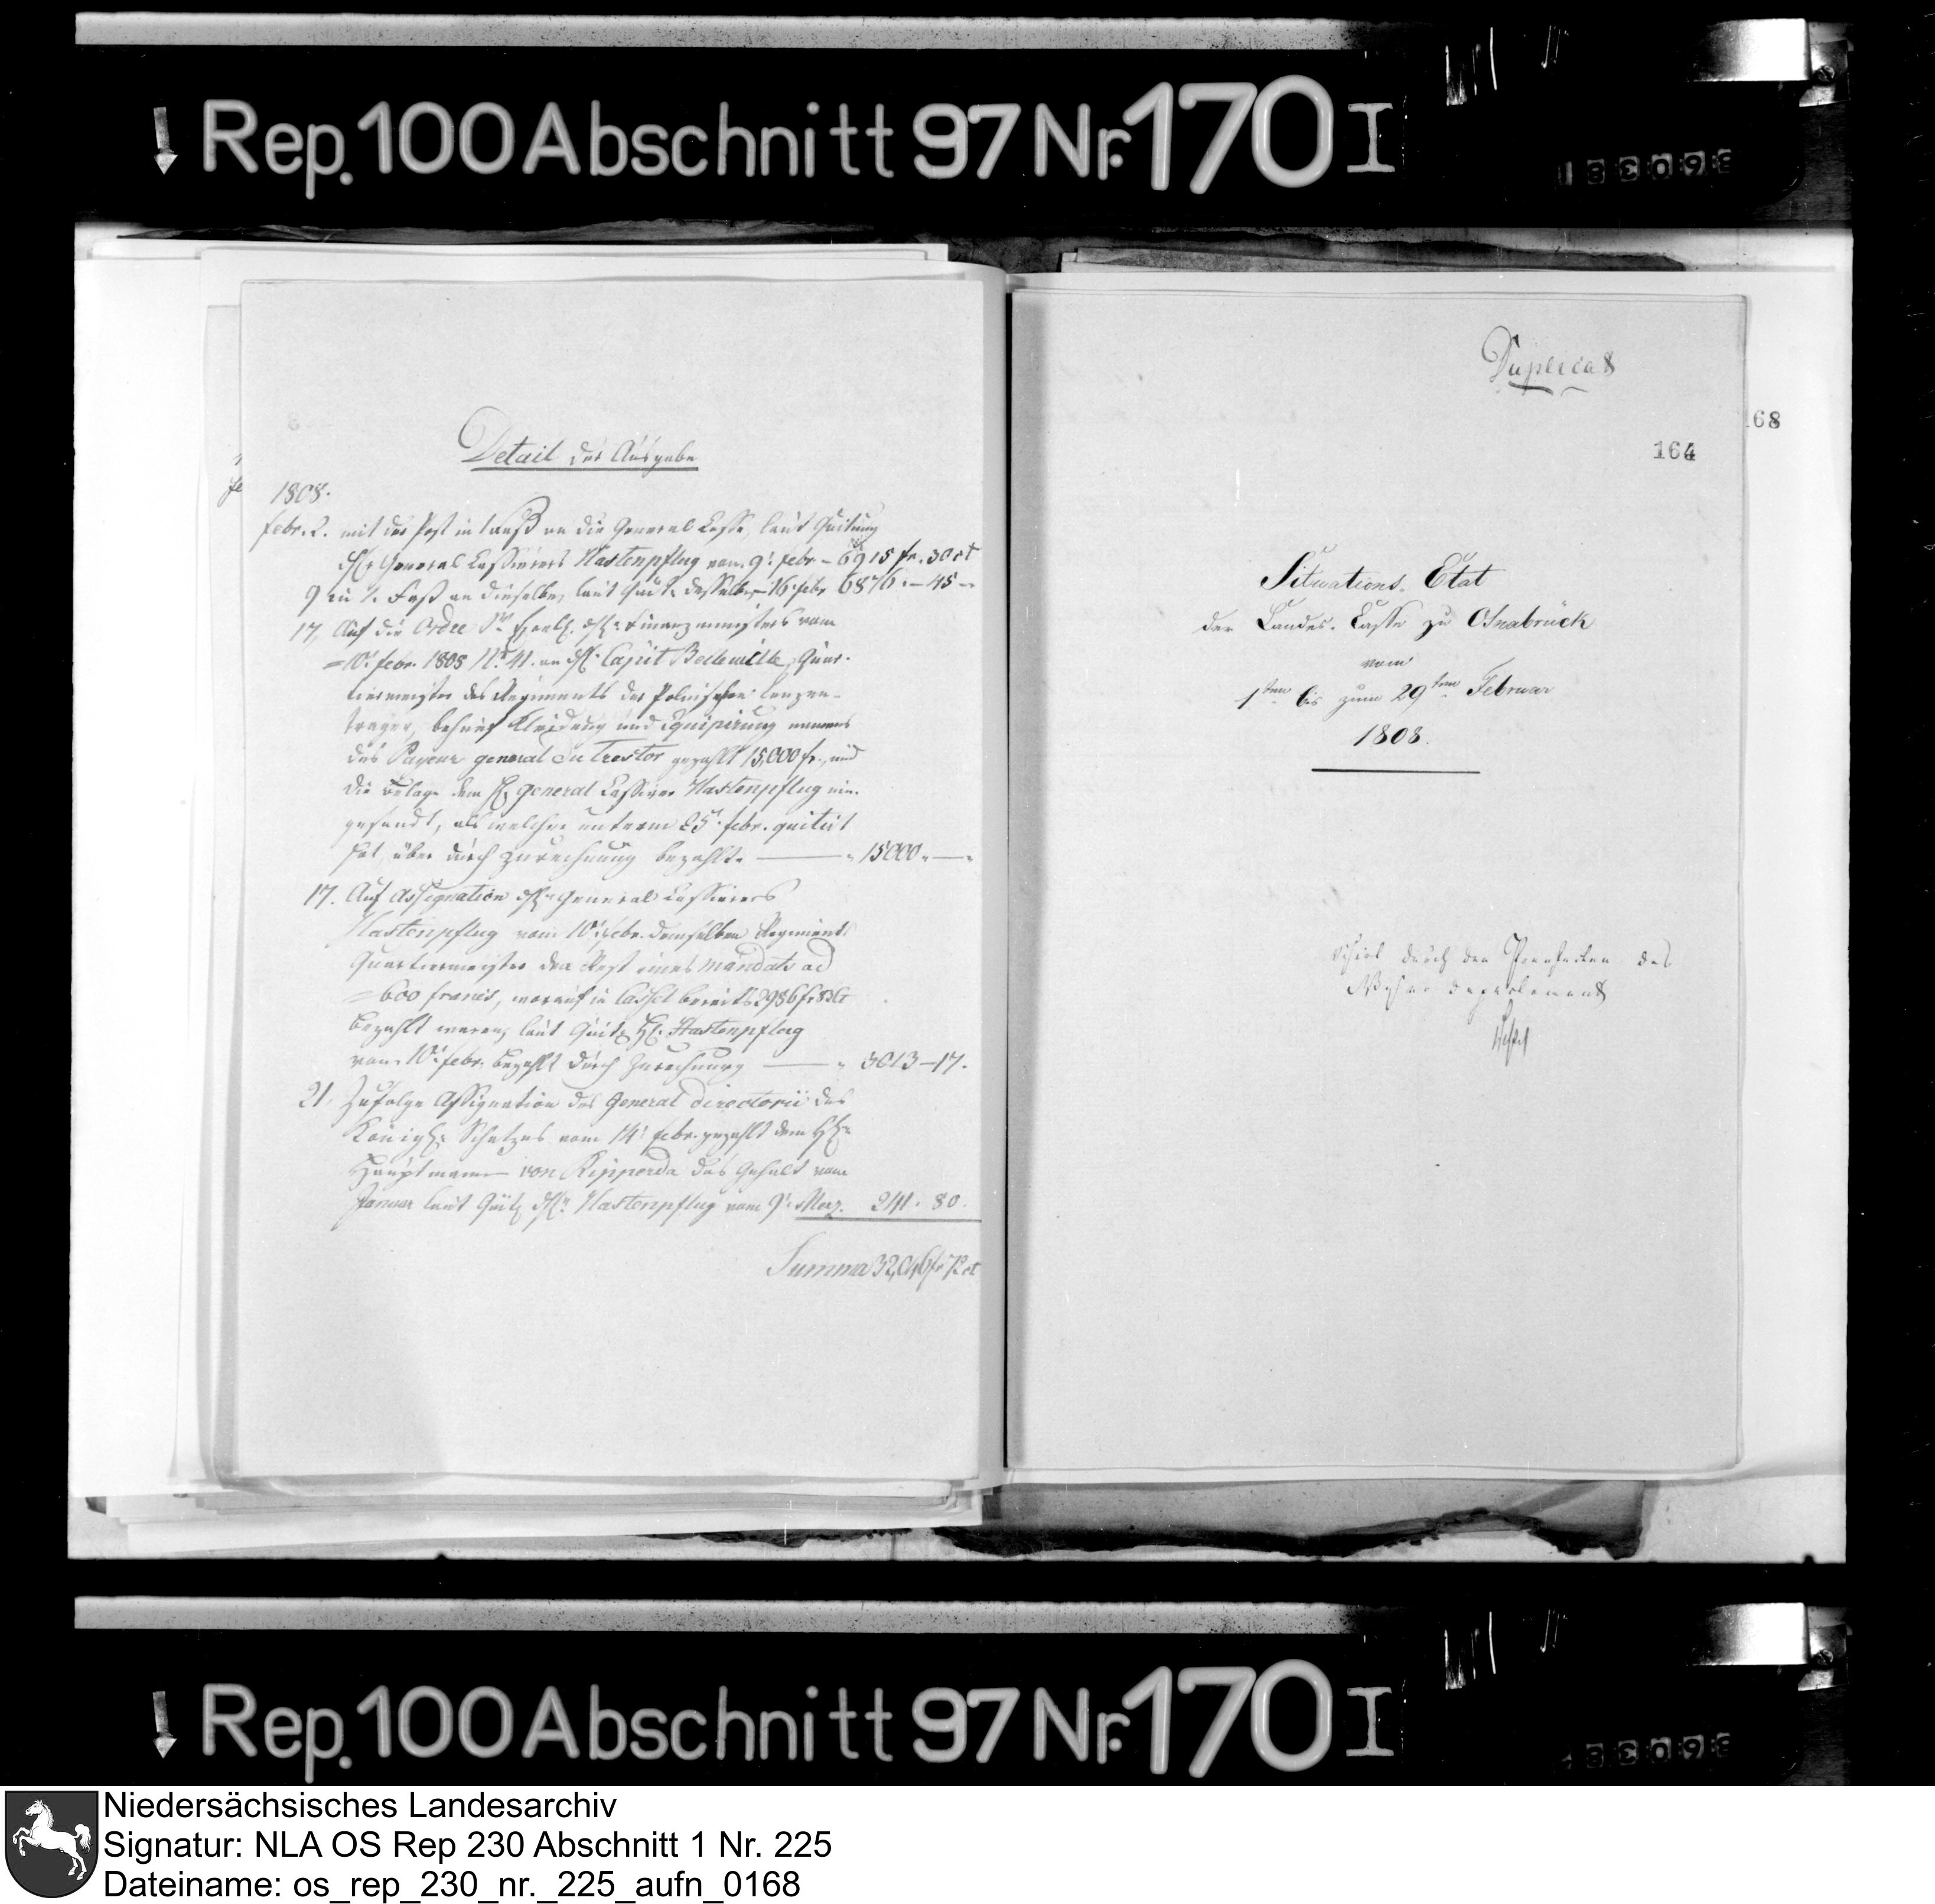 Rep. 100 Abschnitt 97 Nr. 170 I
Detail der Ausgabe
1808.
febr. 2. mit der Post in 1 Faß an die General Casse, laut Quitung
General Cassierers Hastenpflug vom 9t febr – 6915 fr. 30 ct
9 in 1. Faß an dieselbe, laut Quit. desselben 16. febr 6876 – 45 –
17. Auf die Ordre Sr Excell. Finanzministers vom
10t febr. 1808 No. 41. an Capit Belleville, Quar-
tiermeister des Regiments der Polnischen Lanzen-
träger, behuef Kleidung und Equipirung namens
des Payeur general du Trestor gezahlt 15,000 fr., und
die Belage dem H. General Cassierer Hastenpflug ein-
gesandt, als welcher unterm 25t febr. quitirt
hat, über durch Zurechnung bezahlte — " 15000 " — "
17. Auf Assignation General Cassierers
Hastenpflug vom 10t febr. demselben Regiments
Quartiermeister den Rest eines mandats ad
600 francs, worauf in Cassel bereits 2986 fr 83 ct
bezahlt waren, laut Quit. H. Hastenpflug
vom 10t febr. bezahlt durch Zurechnung — " 3013 – 17.
21. Zufolge Assignation des General Directorii des
Königl. Schatzes vom 14t febr. gezahlt dem
Hauptmann von Ripperda das Gehalt vom
Januar laut Quit. Hastenpflug vom 9t Merz. 241. 80.
Summa 32,046 fr 72 ct
Duplicat
168
164
Situations-Etat
der Landes-Casse zu Osnabrück
vom
1ten bis zum 29ten Februar
1808.
visirt durch den Praefecten des
Weser departements
Rep. 100 Abschnitt 97 Nr. 170 I
Niedersächsisches Landesarchiv
Signatur: NLA OS Rep 230 Abschnitt 1 Nr. 225
Dateiname: os_rep_230_nr._225_aufn_0168